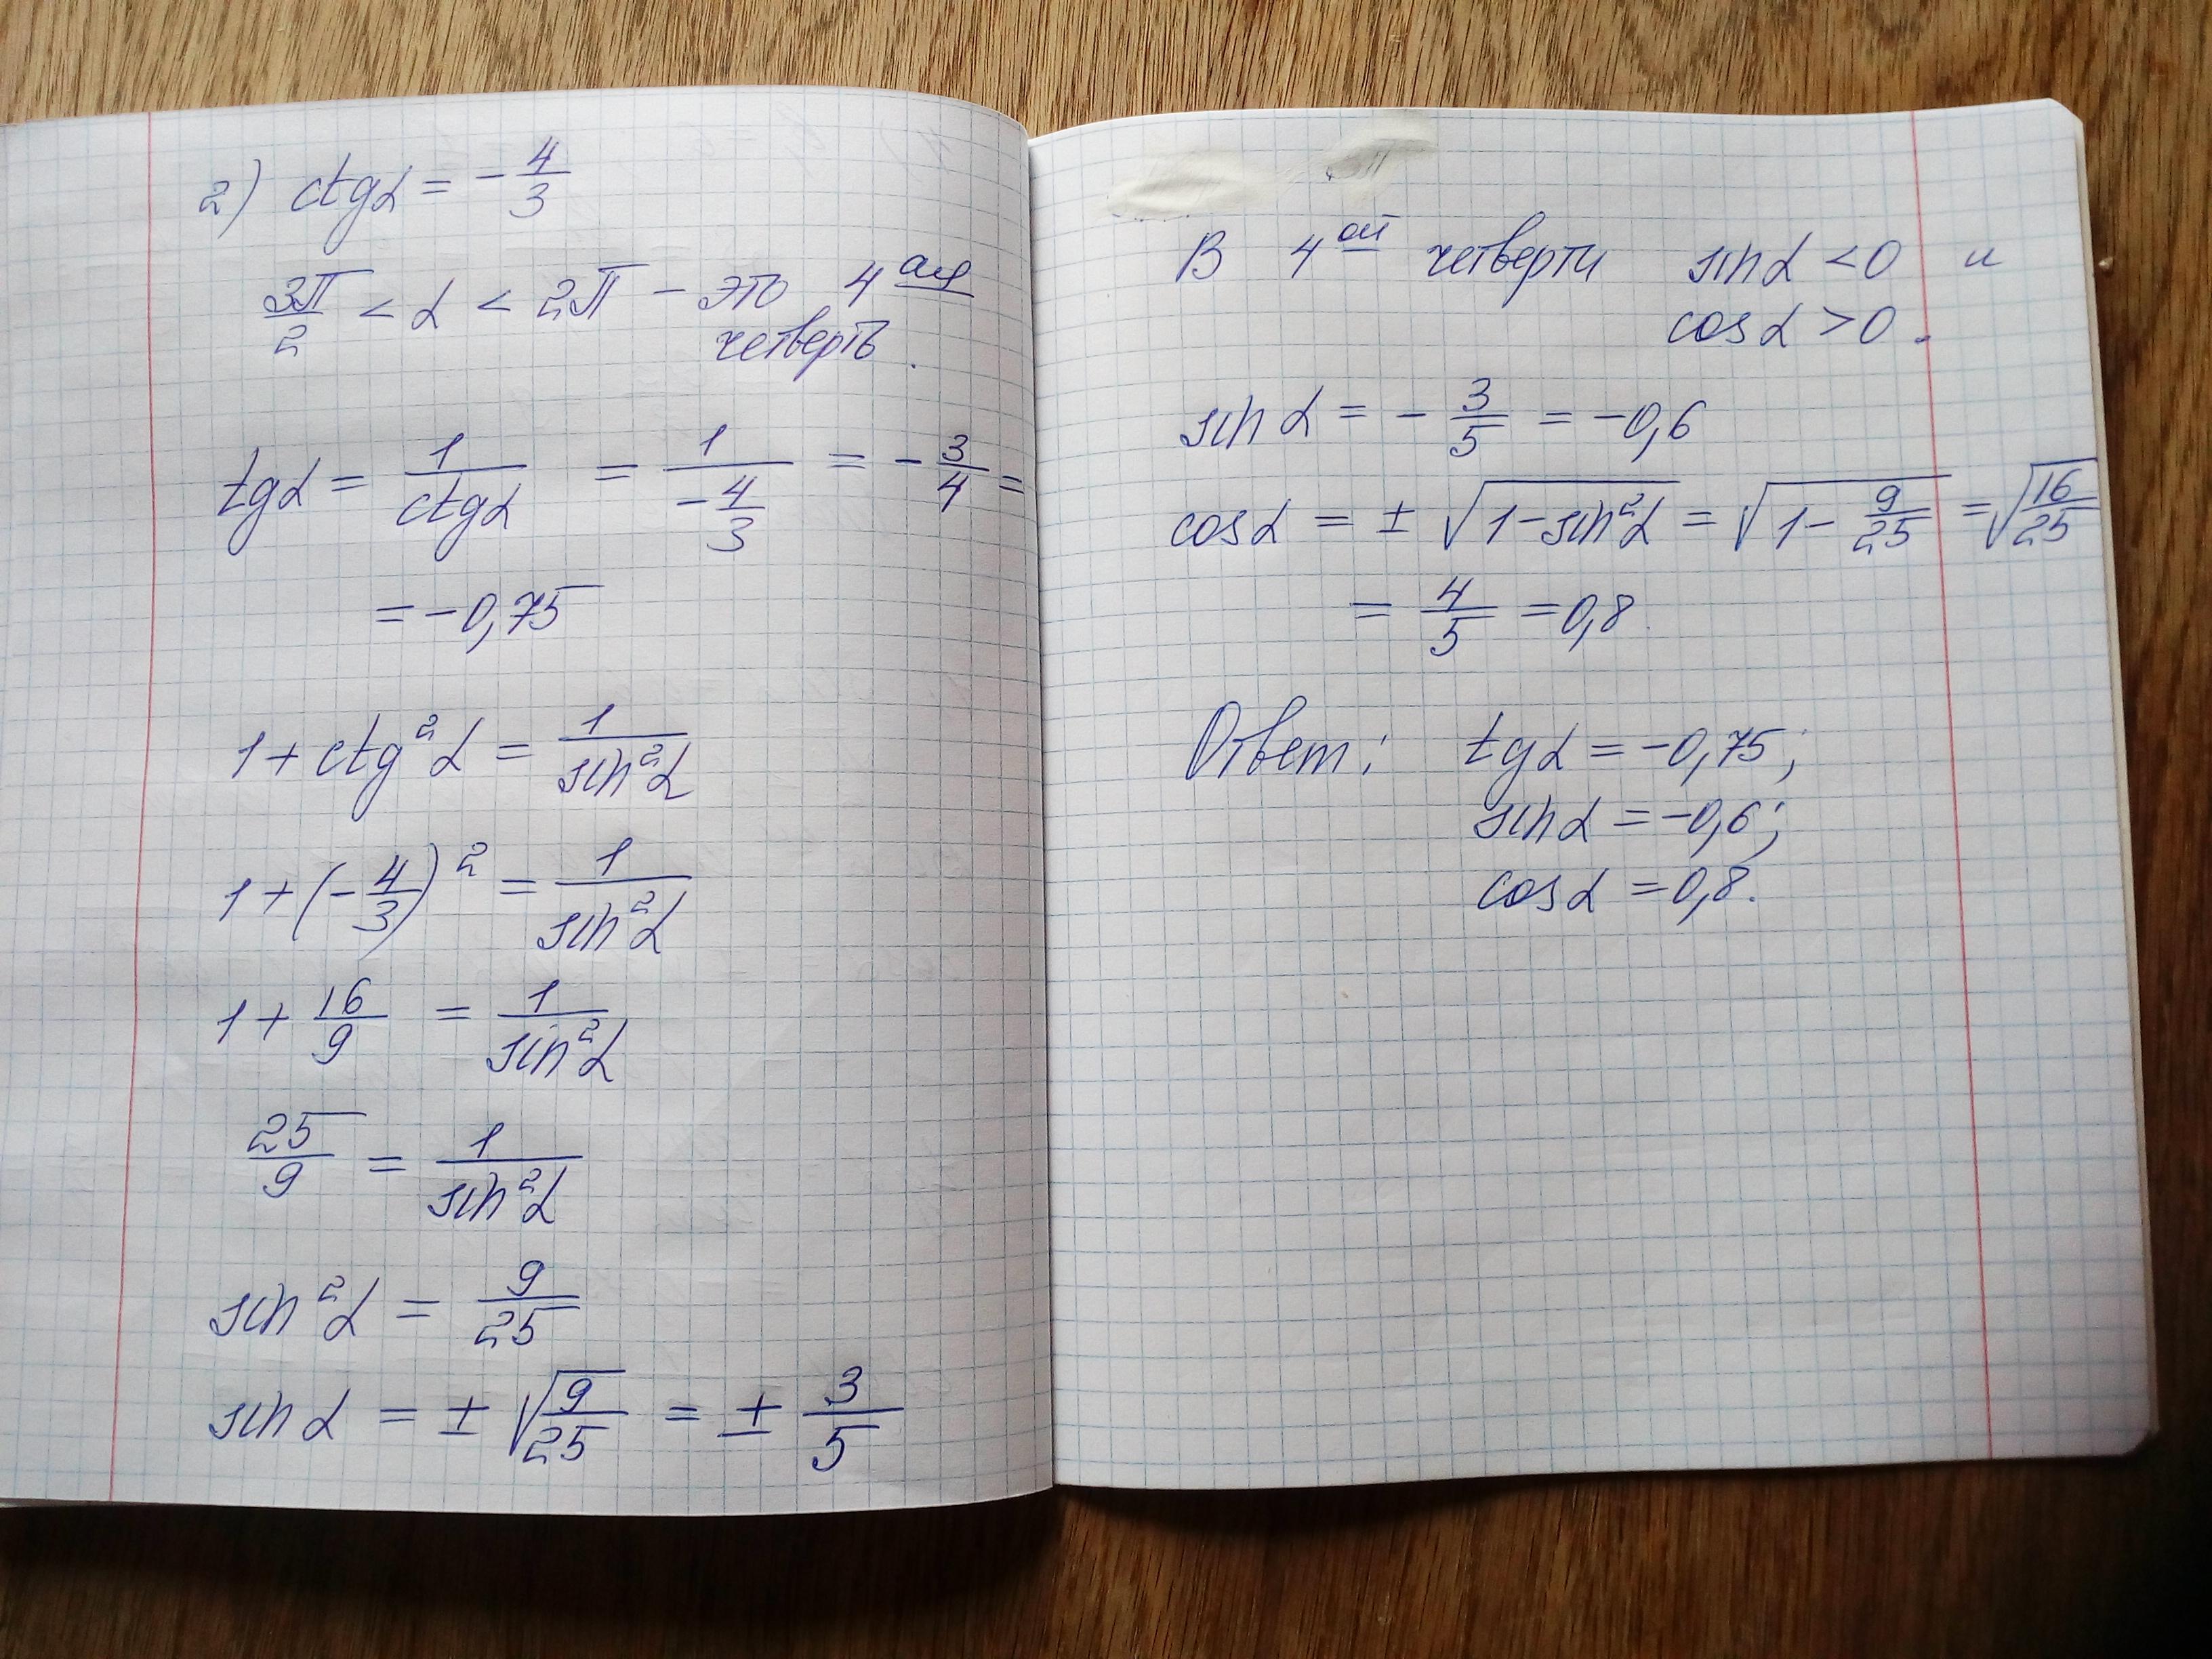 2) ctgα = -4/3
3π/2 < α < 2π - это 4 ая
четверть.
tgα = 1/ctgα = 1/(-4/3) = -3/4 =
= -0,75
1 + ctg²α = 1/sin²α
1 + (-4/3)² = 1/sin²α
1 + 16/9 = 1/sin²α
25/9 = 1/sin²α
sin²α = 9/25
sinα = ± √(9/25) = ± 3/5
В 4 ой четверти sinα < 0 и
cosα > 0.
sinα = - 3/5 = -0,6
cosα = ± √(1-sin²α) = √(1 - 9/25) = √(16/25)
= 4/5 = 0,8.
Ответ: tgα = -0,75;
sinα = -0,6;
cosα = 0,8.